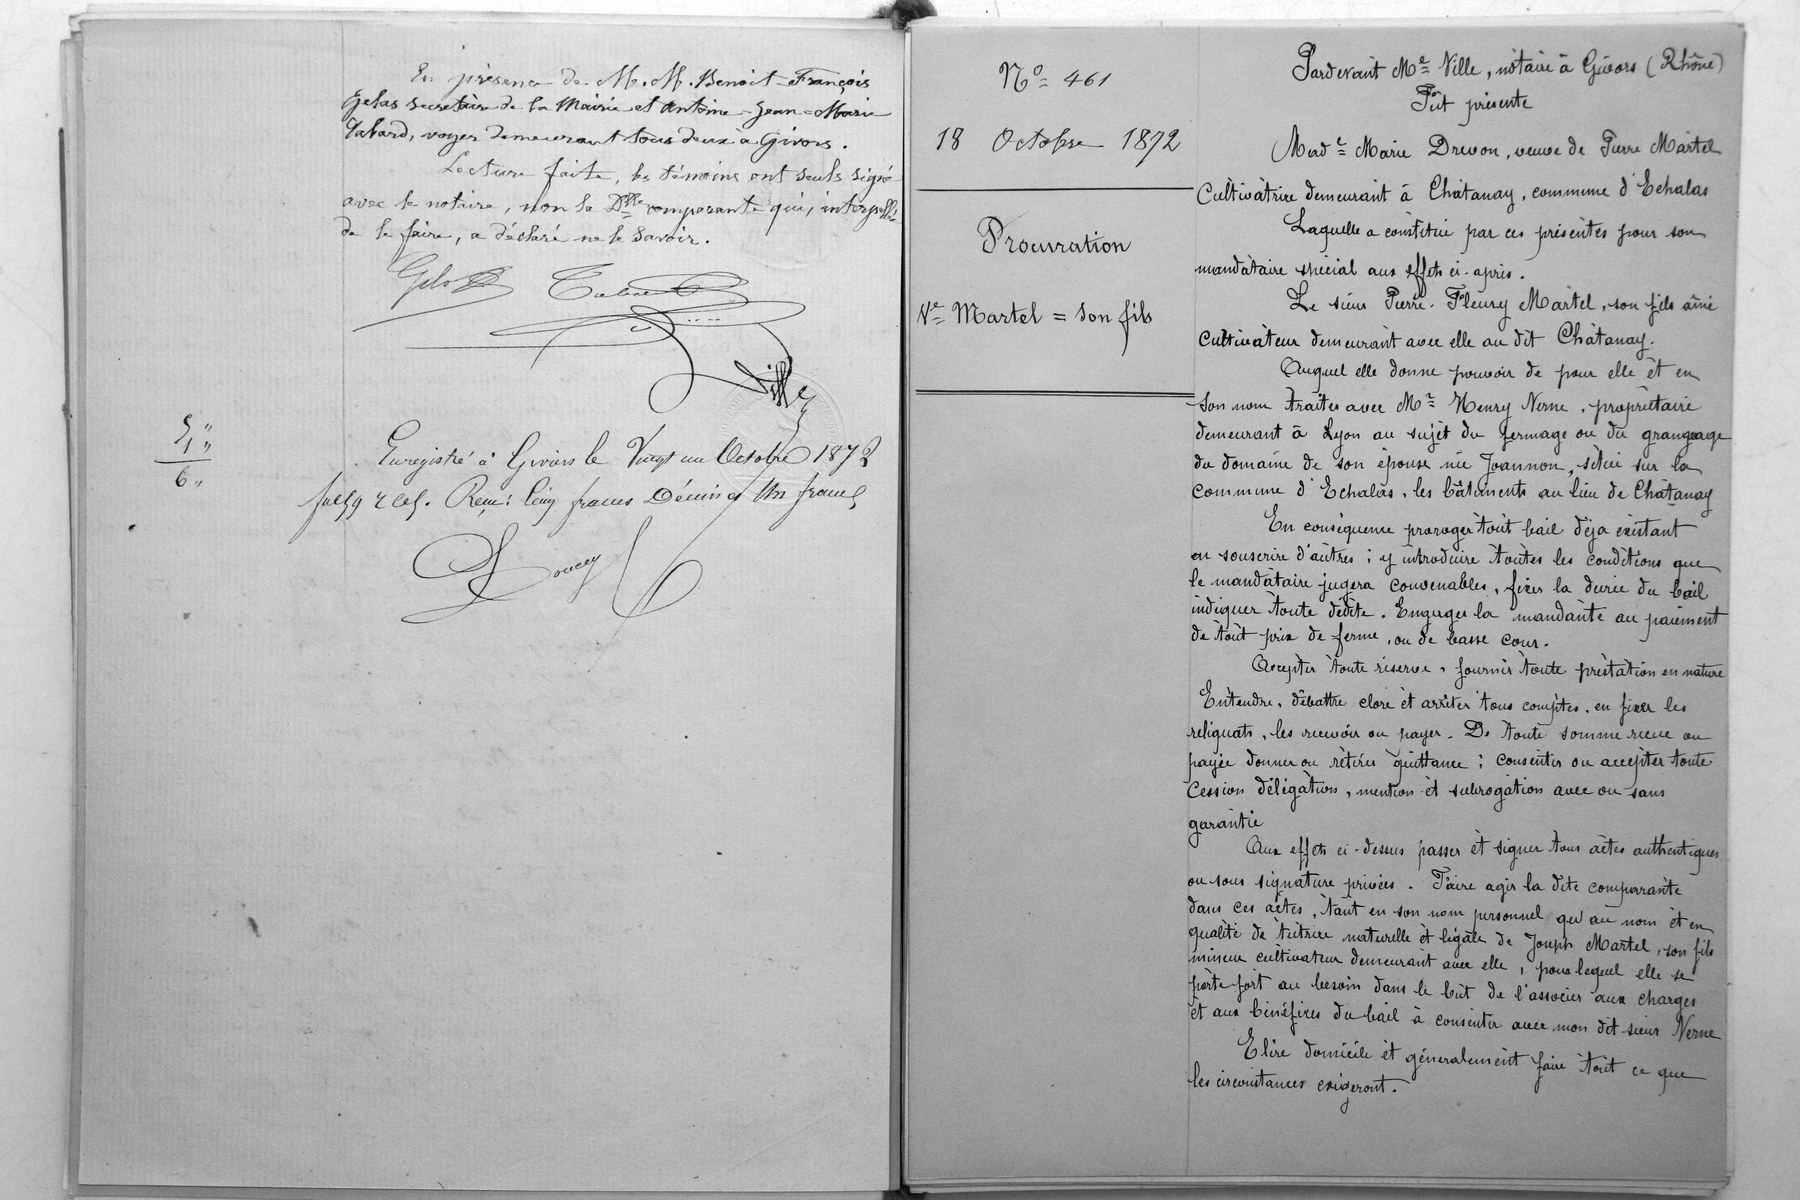 En présence de M. M. Benoit-François
Gelas secrétaire de la Mairie et Antoine-Jean-Marie
Tabard, voyer demeurant tous deux à Givors.
Lecture faite, les témoins ont seuls signé
avec le notaire, non la Dlle comparante qui, interpellée
de le faire, a déclaré ne le savoir.
Gelas Tabard
Ville
5 "
1 "
6 "
Enregistré à Givors le Vingt un Octobre 1872
Reçu: Cinq francs Décimes Un franc
Doucey
No 461
18 Octobre 1872
Procuration
Ve Martel = son fils
Pardevant Me Ville, notaire à Givors (Rhône)
Fut présente
Made Marie Drevon, veuve de Pierre Martel
Cultivatrice demeurant à Châtanay, commune d'Echalas
Laquelle a constitué par ces présentes pour son
mandataire spécial aux effets ci-après.
Le sieur Pierre-Fleury Martel, son fils ainé
Cultivateur demeurant avec elle au dit Châtanay.
Auquel elle donne pouvoir de pour elle et en
son nom traiter avec Mr Henry Nerne, propriétaire
demeurant à Lyon au sujet du fermage ou du grangeage
du domaine de son épouse née Joannon, situé sur la
commune d'Echalas, les bâtiments au lieu de Châtanay
En conséquence proroger tout bail déja existant
en souscrire d'autres; y introduire toutes les conditions que
le mandataire jugera convenables, fixer la durée du bail
indiquer toute dédite. Engager la mandante au paiement
de tout prix de ferme, ou de basse cour.
Accepter toute réserve, fournir toute prestation en nature
Entendre, débattre clore et arrêter tous comptes, en fixer les
reliquats, les recevoir ou payer. De toute somme recue ou
payée donner ou retirer quittance; consentir ou accepter toute
Cession délégation, mention et subrogation avec ou sans
garantie
Aux effets ci-dessus passer et signer tous actes authentiques
ou sous signature privées. Faire agir la dite comparante
dans ces actes, tant en son nom personnel qu'au nom et en
qualité de tutrice naturelle et légale de Joseph Martel, son fils
mineur cultivateur demeurant avec elle, pour lequel elle se
porte fort au besoin dans le but de l'associer aux charges
et aux bénéfices du bail à consentir avec mon dit sieur Nerne
Elire domicile et généralement faire tout ce que
les circonstances exigeront.